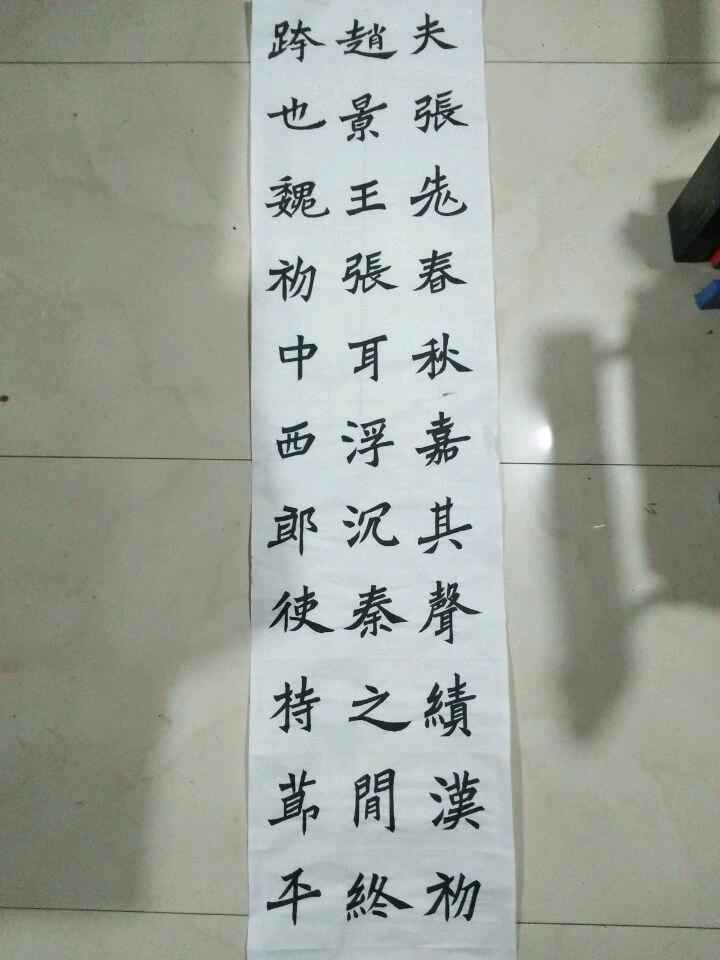 夫張老春秋嘉其聲績漢初
趙景王張耳浮沉秦之間終
跨也魏初中西郎使持節平